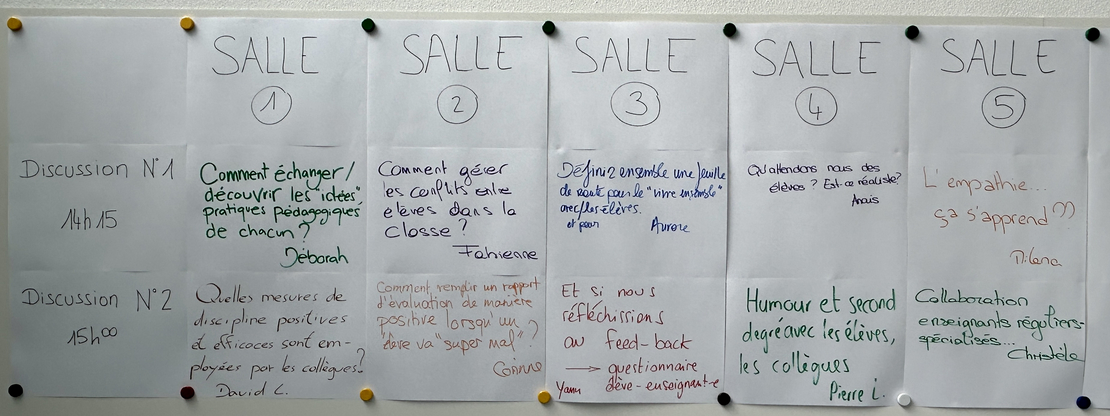 SALLE
1
SALLE
2
SALLE
3
SALLE
4
SALLE
5
Discussion N°1
14h15
Comment échanger/
découvrir les "idées",
pratiques pédagogiques
de chacun ?
Déborah
Comment gérer
les conflits entre
élèves dans la
classe ?
Fabienne
Définir ensemble une feuille
de route pour le "vivre ensemble"
avec/les élèves.
et pour
Aurore
Qu'attendons nous des
élèves ? Est-ce réaliste?
Anaïs
L'empathie...
ça s'apprend
Discussion N°2
15h00
Quelles mesures de
discipline positives
et efficaces sont em-
ployées par les collègues?
David L.
Comment remplir un rapport
d'évaluation de manière
positive lorsqu'un
élève va "super mal" ?
Corinne
Et si nous
réfléchissions
au feed-back
→ questionnaire
élève-enseignant-e
Yann
Humour et second
degré avec les élèves,
les collègues
Pierre L.
Collaboration
enseignants réguliers-
spécialisés...
Christèle